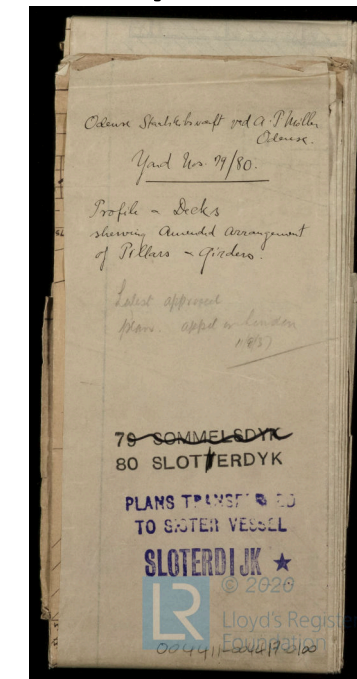 Odense Staalskibsværft ved A. P. Møller
Odense.
Yard Nos. 79/80.
Profile & Decks
shewing Amended Arrangement
of Pillars & Girders.
Latest approved
plan. appd in London
79 SOMMELSDYK
80 SLOTTERDYK
PLANS TRANSFERRED
TO SISTER VESSEL
SLOTERDIJK ★
© 2020
LR
Lloyd's Register
Foundation